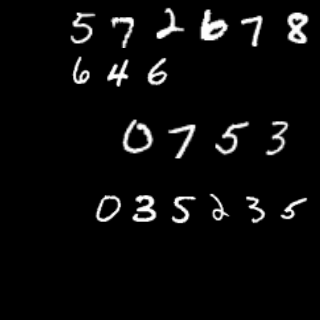 572678
646
0753
035235